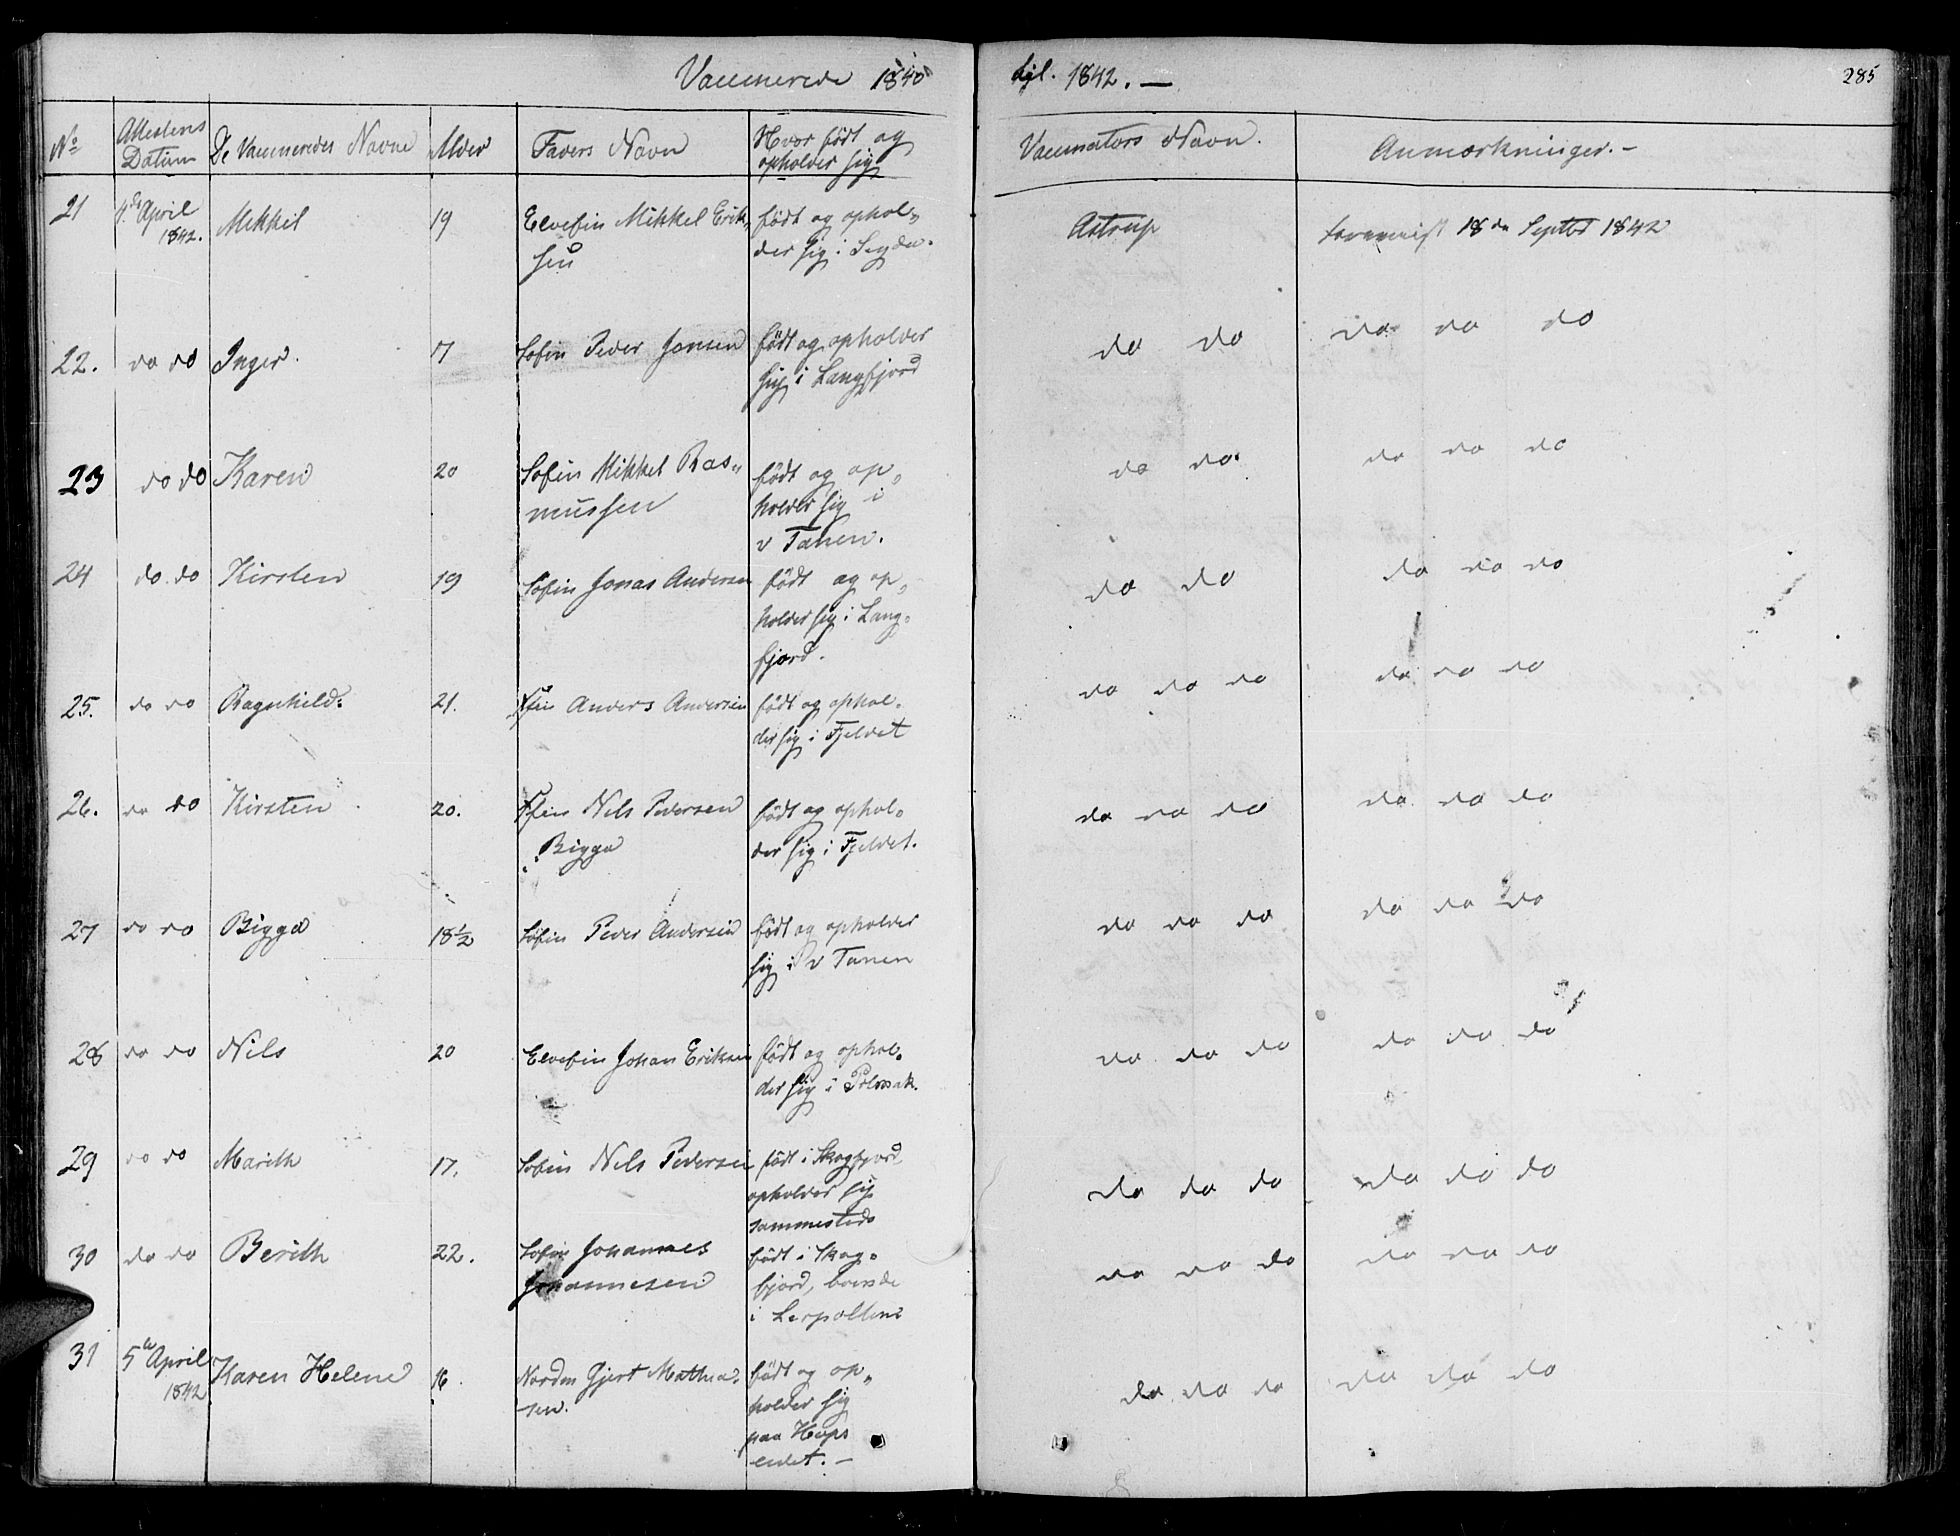 Vaccinerede 1840
tjl. 1842. —
285
No
Attestens Datum
De Vaccineredes Navne
Alder
Faders Navn
Hvor født og opholder sig
Vaccinators Navn.
Anmærkninger. —
21 4de April 1842. Mikkel 19 Elvefin Mikkel Erik„
sen
født og ophol„
der sig i
Astrup
18de Septbr 1842
22. do do Inger. 17 Søfin Peder Jonsen født og opholder
sig i Langfjord
do do
do do do
23 do do Karen 20 Søfin Mikkel Ras„
mussen
født og op„
holder sig i
v Tanen.
do do.
do do do
24 do do Kirsten 19 Søfin Jonas Andersen født og op„
holder sig i Lang„
fjord.
do do
do do do
25. do do Ragnhild. 21. Ffin Anders Andersen født og ophol„
der sig i Fjeldet
do do do
do do do
26. do do Kirsten 20. Ffin Nils Pedersen
Bigga
født og ophol„
der sig i Fjeldet.
do do do
do do do
27 do do Bigga 18½ Søfin Peder Andersen født og opholder
sig i v Tanen
do do do
do do do
28 do do Nils 20 Elvefin Johan Eriksen født og ophol„
der sig i Polmak.
do do do
do do do
29 do do Marith 17. Søfin Nils Pedersen født i Skogfjord
opholder sig
sammesteds
do do do
do do do
30 do do Berith 22. Søfin Johannes
Johannesen
født i Skog„
fjord, boende
i Leirpollen
do do do
do do do
31 5te April 1842 Karen Helene 16. Nordm Gjert Mathia„
sen.
født og op„
holder sig
paa Hops
eidet. —
do do do
do do do